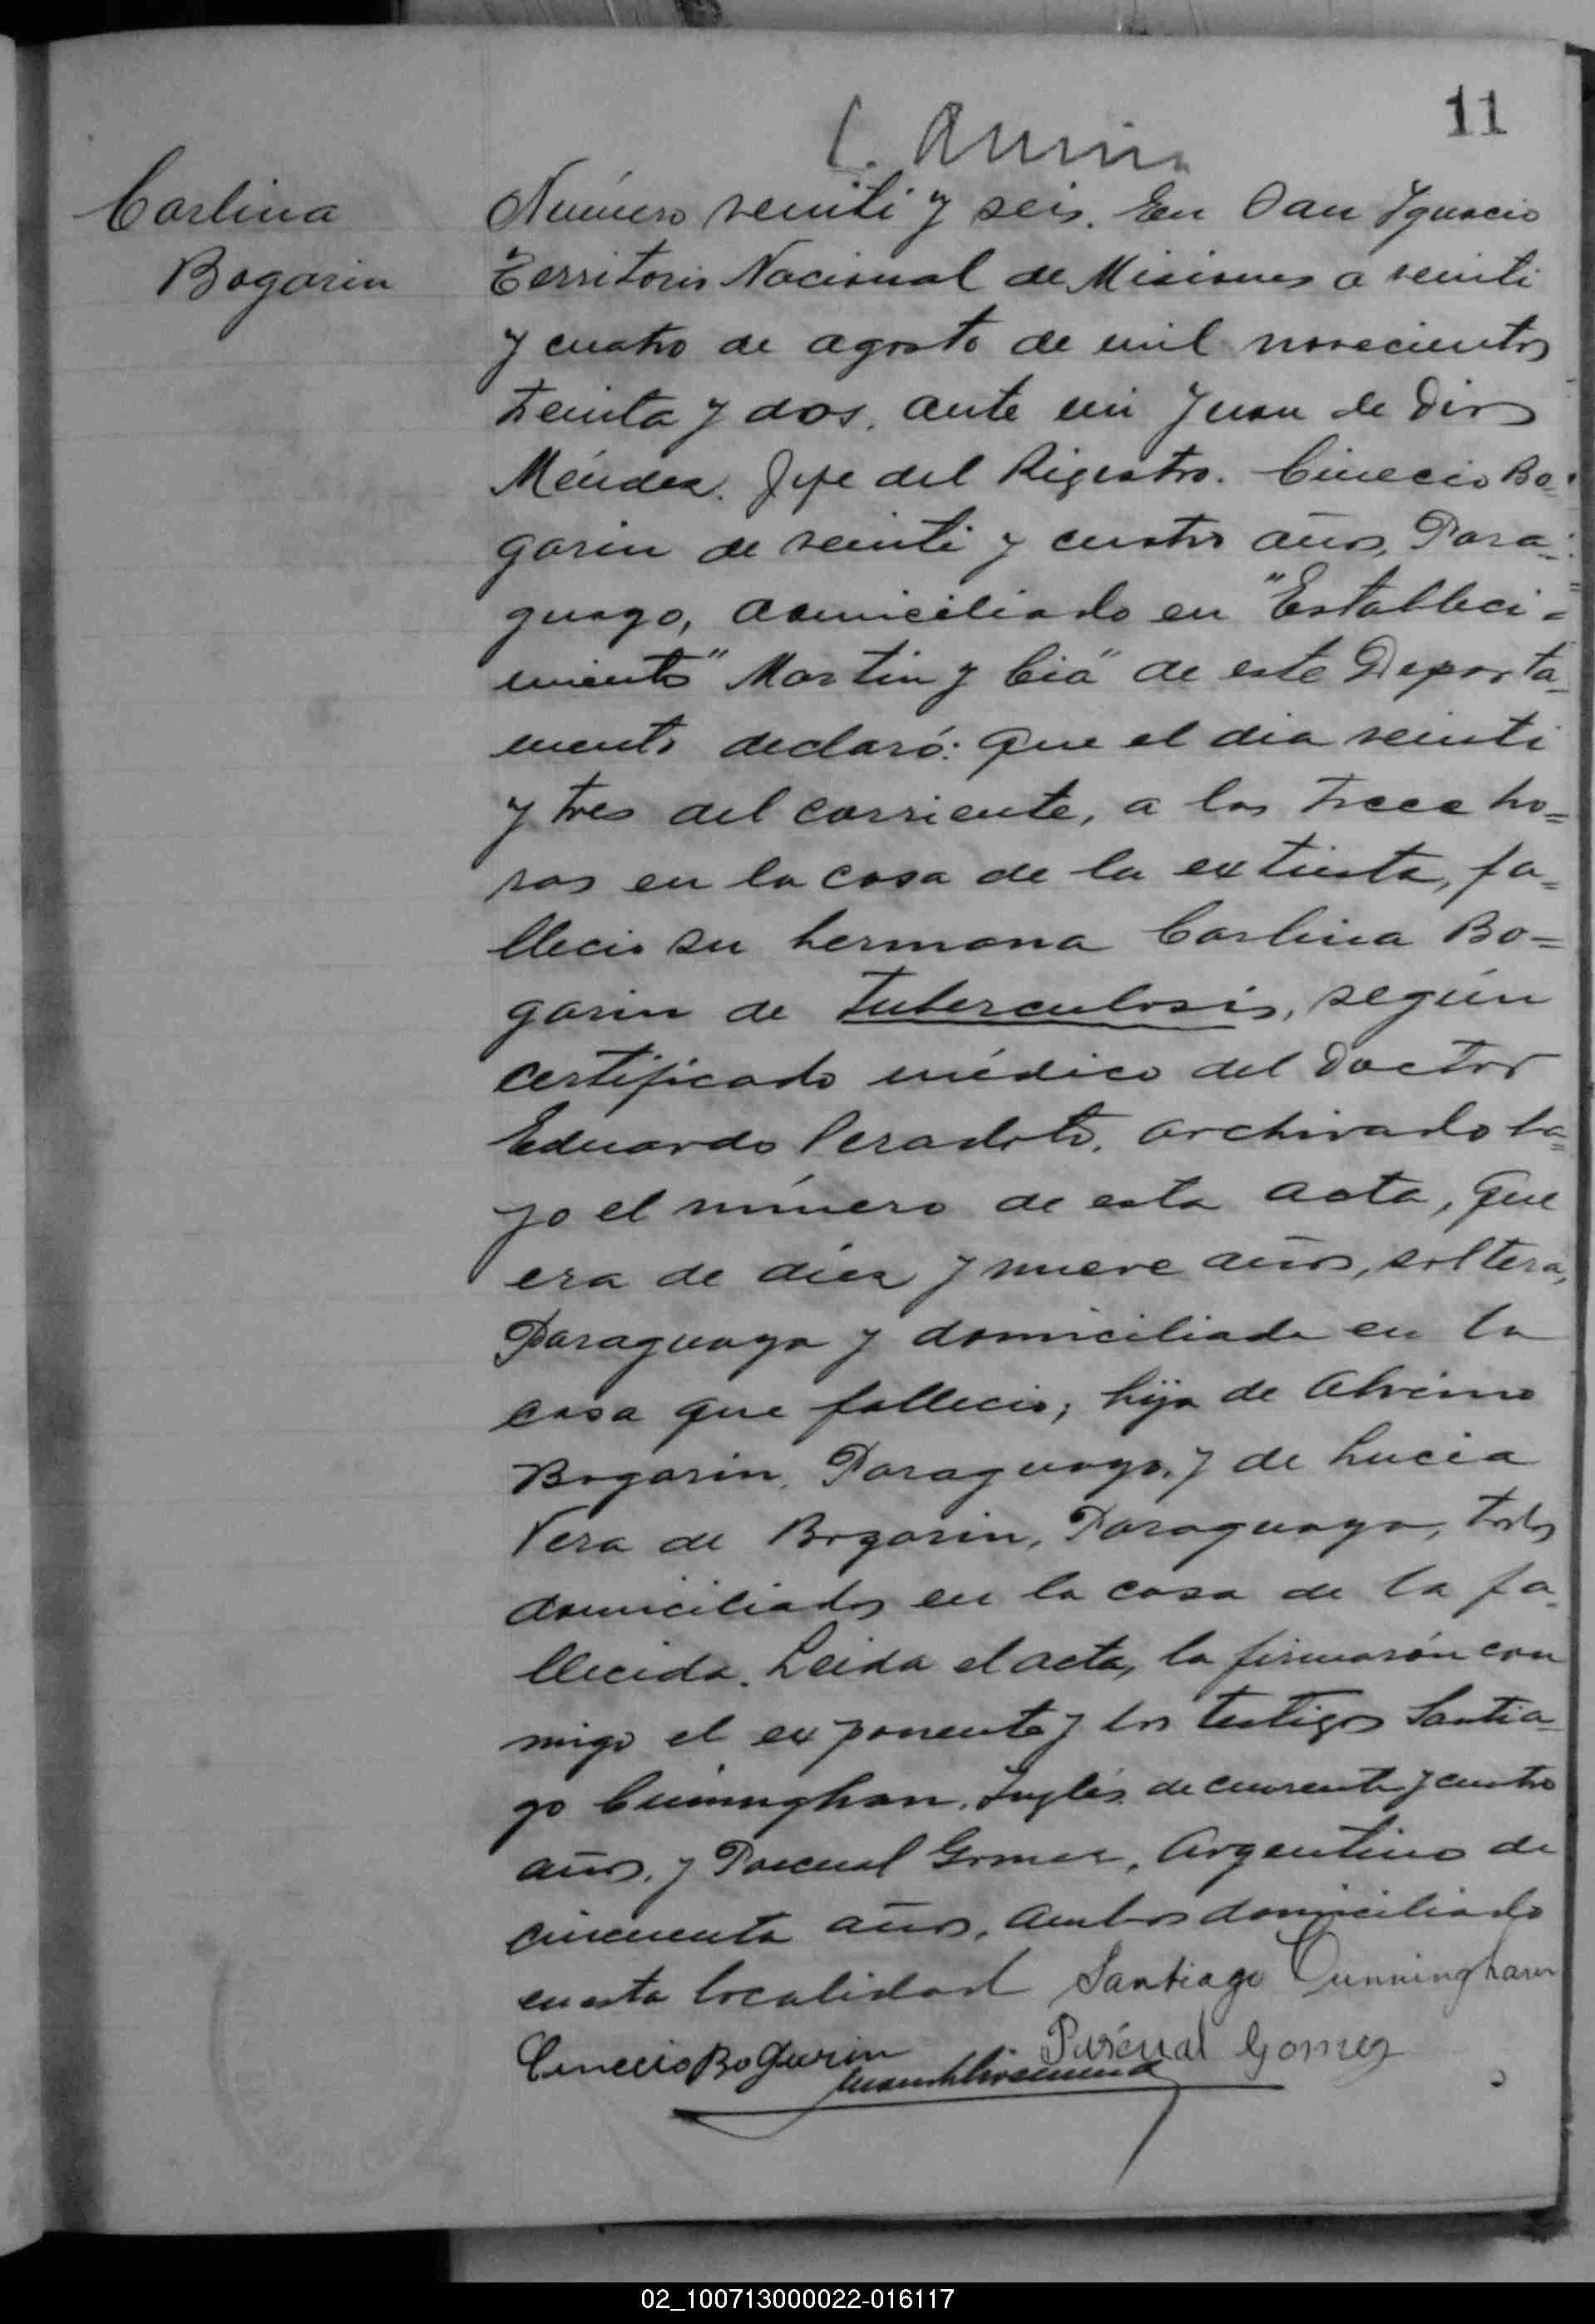 11
Carlina
Bogarin
Número veinti y seis. En San Ygnacio
Territorio Nacional de Misiones a veinti
y cuatro de agosto de mil novecientos
treinta y dos, ante mi Juan de Dios
Méndez. Jefe del Registro. Cinecio Bo=
garin de veinti y cuatro años, Para=
guayo, domiciliado en "Estableci=
miento" Martin y Cia" de este Departa=
mento declaró: Que el dia veinti
y tres del corriente, a las trece ho=
ras en la casa de la extinta, fa=
llecio su hermana Carlina Bo=
garin de tuberculosis, según
certificado médico del Doctor
Eduardo Peradoto, archivado ba=
jo el número de esta acta, Que
era de diez y nueve años, soltera,
Paraguaya y domiciliada en la
casa que fallecio; hija de Alvino
Bogarin, Paraguayo, y de Lucia
Vera de Bogarin, Paraguaya, todos
domiciliados en la casa de la fa=
llecida. Leida el acta, la firmarón con
migo el exponente y los testigos Santia=
go Cuninghan, Inglés de cuarenta y cuatro
años, y Pascual Gomez, Argentino de
cincuenta años, ambos domiciliado
en esta localidad Santiago Cunningham
Cinecio Bogarin Pascual Gomez
02_100713000022-016117